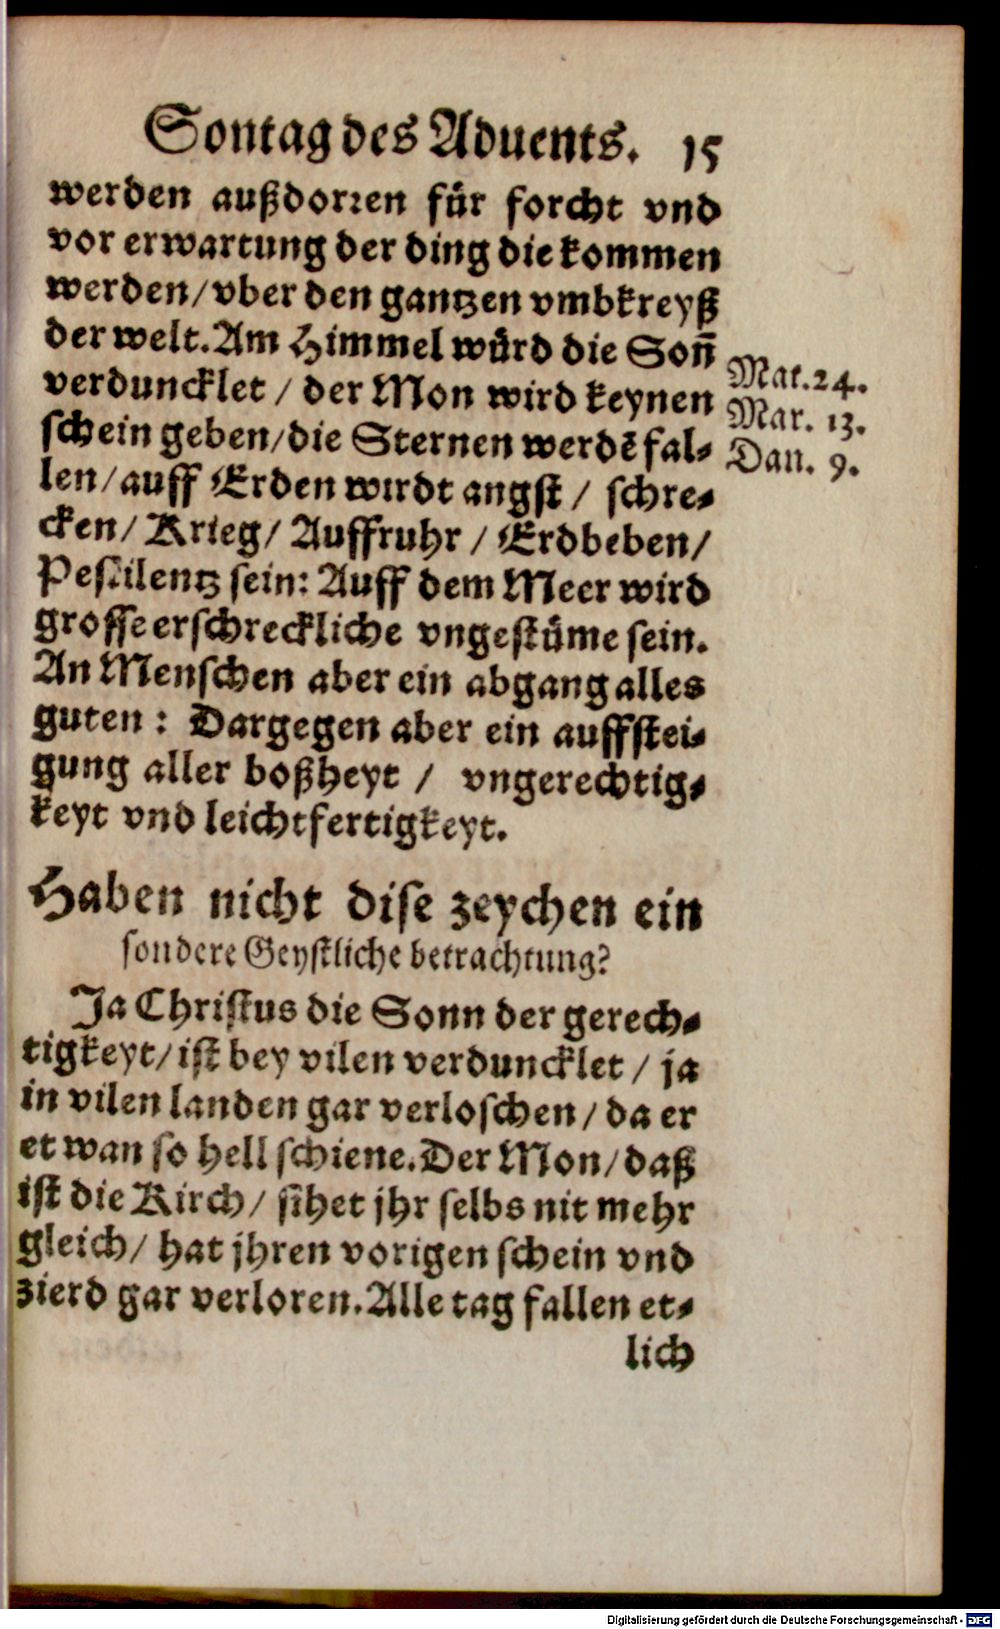 Sontag des Aduents. 15
werden außdorren für forcht vnd
vor erwartung der ding die kommen
werden/vber den gantzen vmbkreyß
der welt. Am Himmel würd die Soñ
verduncklet / der Mon wird keynen
schein geben/die Sternen werdē fal-
len/auff Erden wirdt angst / schre-
cken/ Krieg/ Auffruhr / Erdbeben/
Pestilentz sein: Auff dem Meer wird
grosse erschreckliche vngestüme sein.
An Menschen aber ein abgang alles
guten : Dargegen aber ein auffstei-
gung aller boßheyt / vngerechtig-
keyt vnd leichtfertigkeyt.
Mat. 24.
Mar. 13.
Dan. 9.
Haben nicht dise zeychen ein
sondere Geystliche betrachtung?
Ja Christus die Sonn der gerech-
tigkeyt/ist bey vilen verduncklet / ja
in vilen landen gar verloschen/da er
etwan so hell schiene. Der Mon/daß
ist die Kirch/ sihet jhr selbs nit mehr
gleich/ hat jhren vorigen schein vnd
zierd gar verloren. Alle tag fallen et-
lich
Digitalisierung gefördert durch die Deutsche Forschungsgemeinschaft - DFG